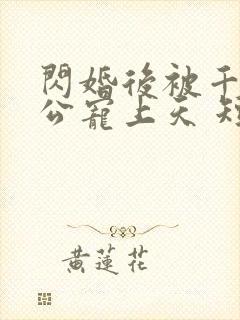 閃婚後被千
公寵上天 短
黃蓮花